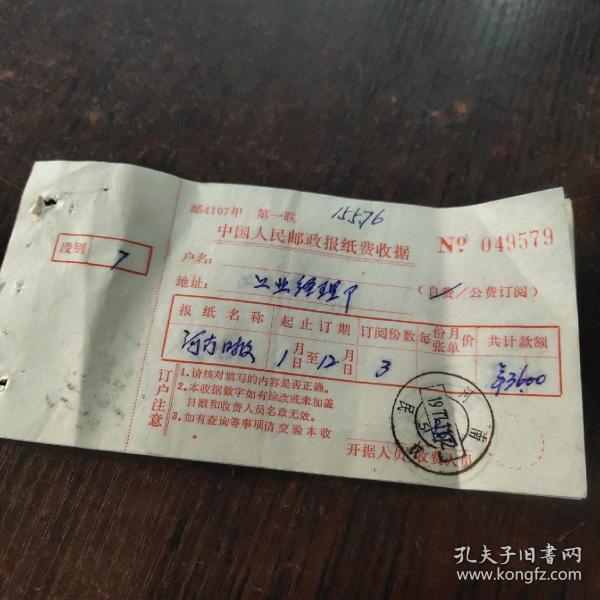 邮4107甲 第一联 15576
中国人民邮政报纸费收据 Nº 049579
段别 7
户名:
地址: 工业经理 (自费/公费订阅)
报纸名称 起止订期 订阅份数 每份月张单价 共计款额
河南日报 1月日至12月日 3 ¥3600
订户注意
1.请核对填写的内容是否正确。
2.本收据数字如有涂改或未加盖
日戳和收费人员名章无效。
3.如有查询等事项请交验本收
开据人员 收费人员
河南
孔夫子旧书网
www.kongfz.com